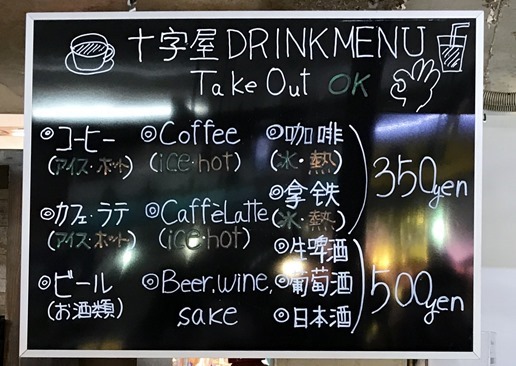 十字屋 DRINK MENU
Take Out OK
◎コーヒー
(アイス・ホット)
◎カフェ・ラテ
(アイス・ホット)
◎ビール
(お酒類)
◎Coffee
(ice・hot)
◎CaffèLatte
(ice・hot)
◎Beer,wine,
sake
◎咖啡
(氷・熱)
◎拿铁
(氷・熱)
◎生啤酒
◎葡萄酒
◎日本酒
350yen
500yen